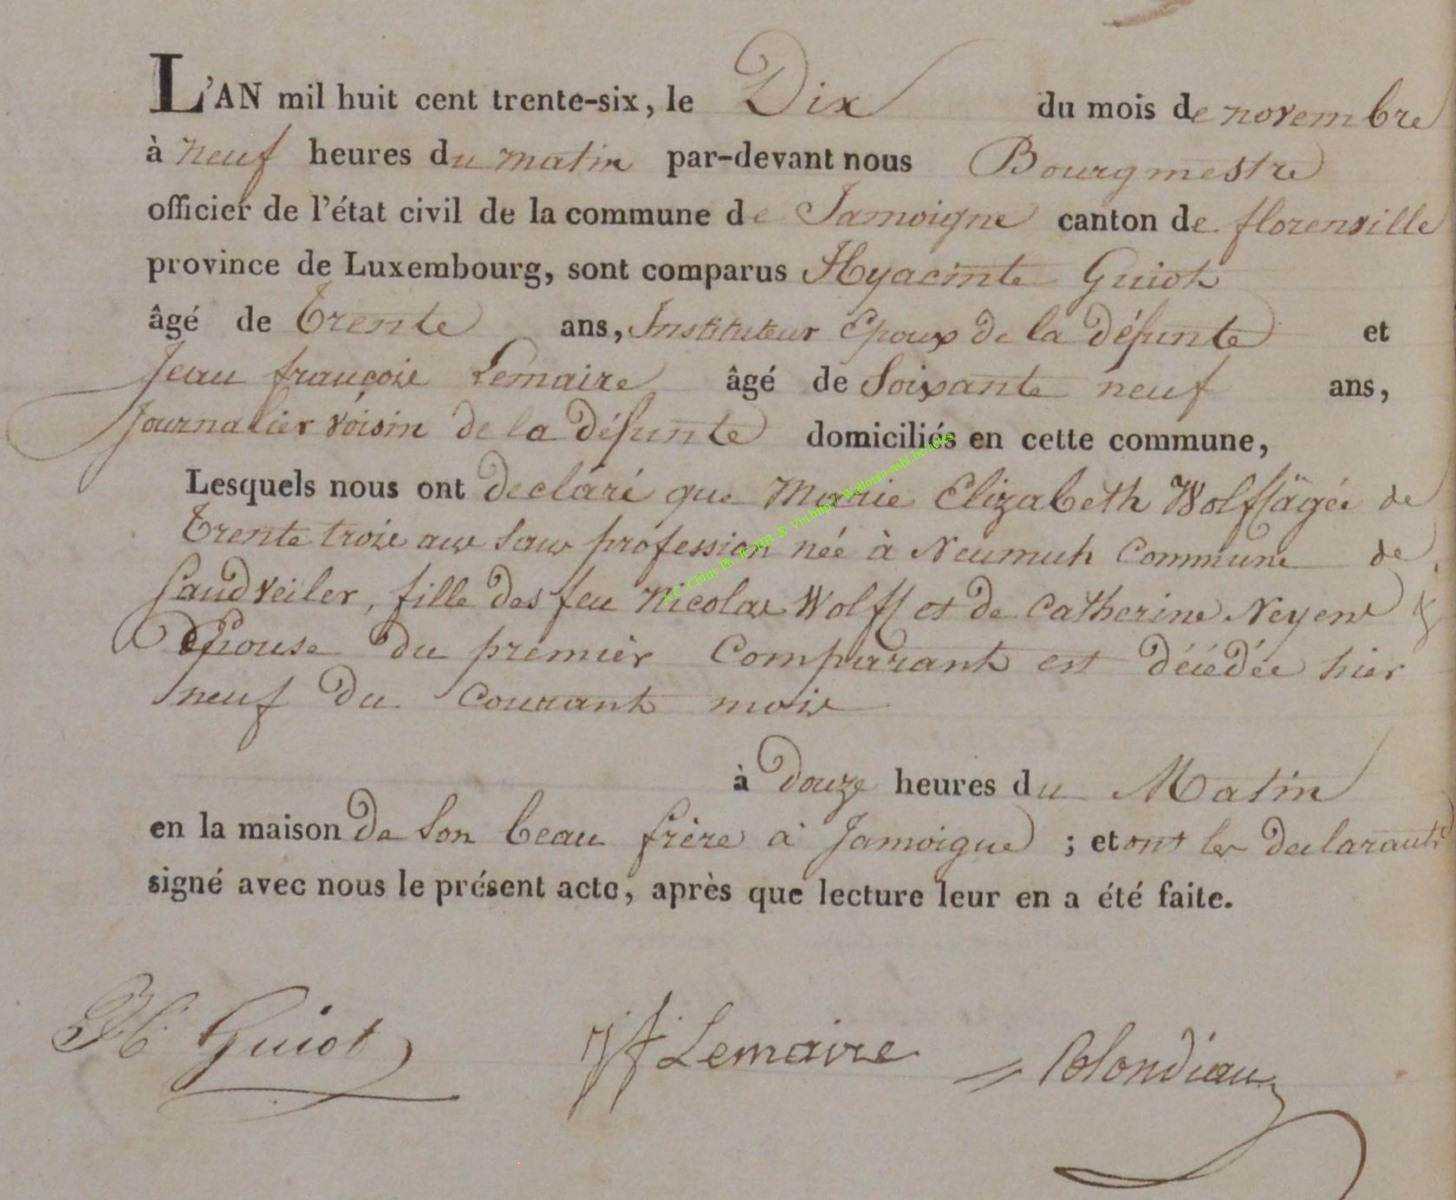 L'AN mil huit cent trente-six, le Dix du mois de novembre
à neuf heures du matin par-devant nous Bourgmestre
officier de l'état civil de la commune de Jamoigne canton de florenville
province de Luxembourg, sont comparus Hyacinte Guiot
âgé de trente ans, Instituteur Epoux de la défunte et
Jean françois Lemaire âgé de Soixante neuf ans,
Journalier voisin de la défunte domiciliés en cette commune,
Lesquels nous ont déclaré que Marie Elizabeth Wolff âgée de
trente trois ans sans profession née à Neumuh Commune de
Sandveiler, fille des feu Nicolas Wolff et de Catherine Neyens
Epouse du premier Comparant est décédée hier
neuf du Courant mois
à douze heures du Matin
en la maison de son beau frère à Jamoigne ; et ont les declarants
signé avec nous le présent acte, après que lecture leur en a été faite.
H Guiot JF Lemaire Colondiau